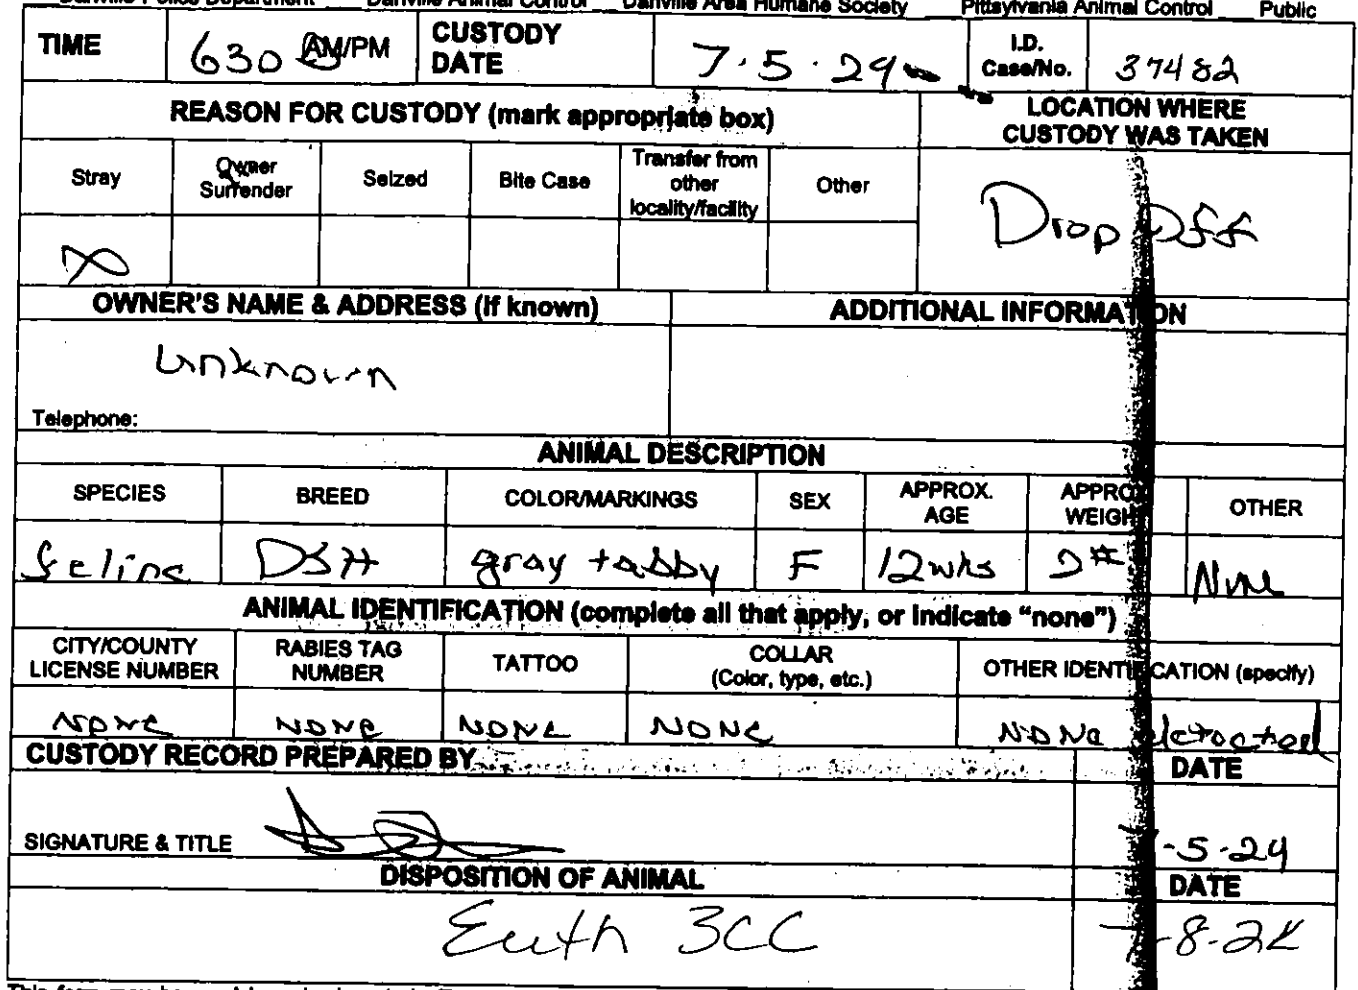 Danville Police Department Danville Animal Control Danville Area Humane Society Pittsylvania Animal Control Public
TIME 630 AM/PM CUSTODY DATE 7.5.24 I.D. Case/No. 37482
REASON FOR CUSTODY (mark appropriate box) LOCATION WHERE CUSTODY WAS TAKEN
Stray Owner Surrender Seized Bite Case Transfer from other locality/facility Other
X Drop Off
OWNER'S NAME & ADDRESS (if known) ADDITIONAL INFORMATION
Unknown
Telephone:
ANIMAL DESCRIPTION
SPECIES BREED COLOR/MARKINGS SEX APPROX. AGE APPROX WEIGH OTHER
feline DSH gray tabby F 12wks 2# None
ANIMAL IDENTIFICATION (complete all that apply, or indicate "none")
CITY/COUNTY LICENSE NUMBER RABIES TAG NUMBER TATTOO COLLAR (Color, type, etc.) OTHER IDENTIFICATION (specify)
None None None None None detected
CUSTODY RECORD PREPARED BY DATE
SIGNATURE & TITLE 7-5-24
DISPOSITION OF ANIMAL DATE
Euth 3CC 7-8-24